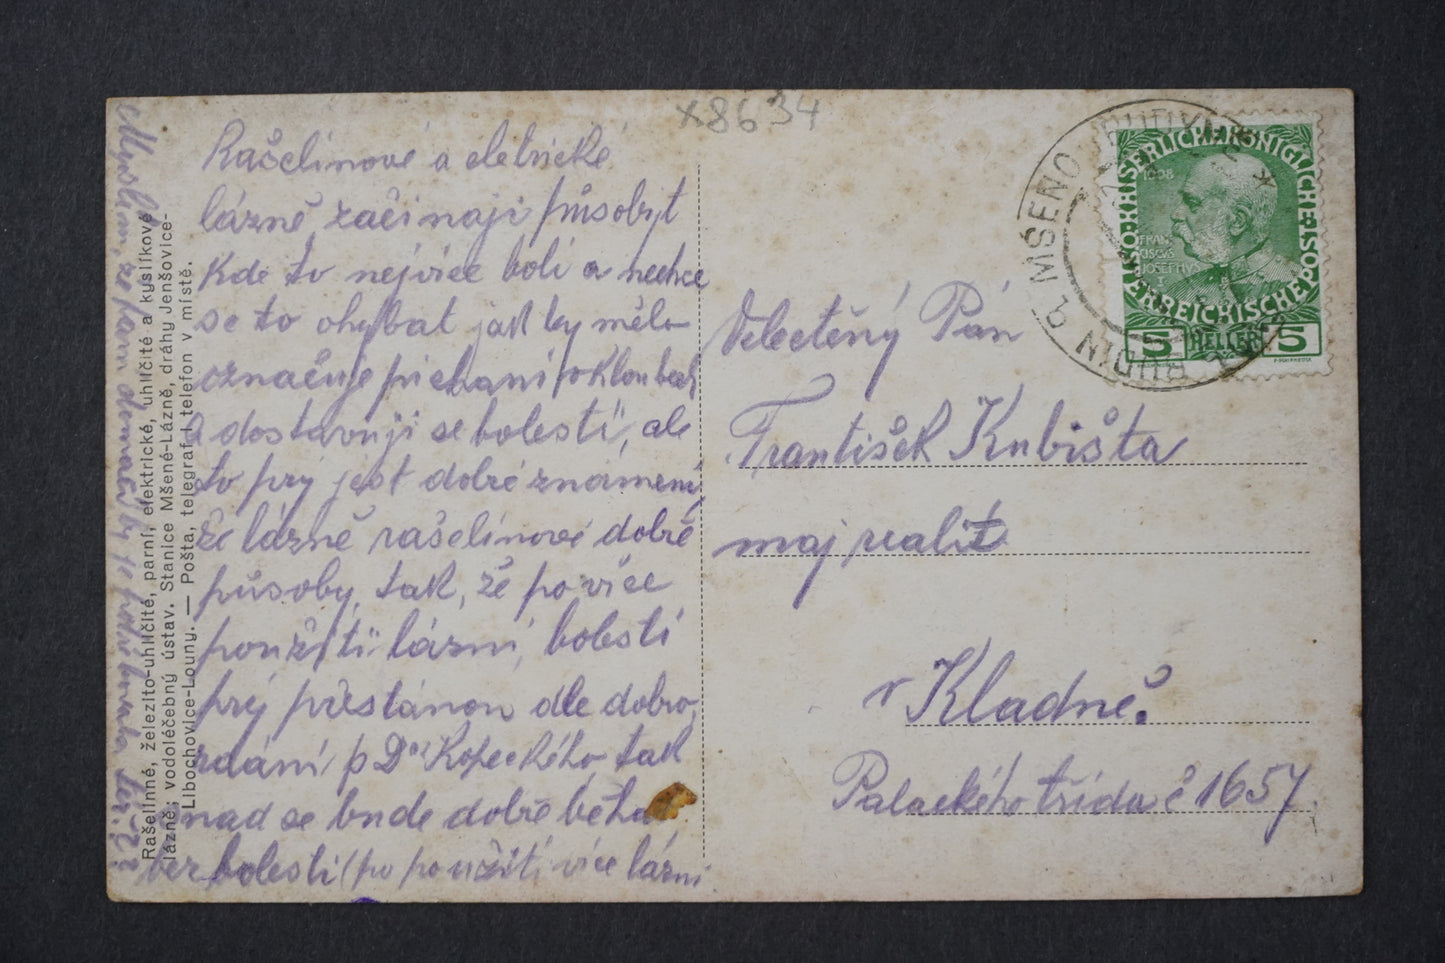 x8634
Rašelinové a eletrické
lázně začínaji působyt
kde to nejvíce bolí a nechce
se to ohybat jak by mělo
označuje píchaní v kloubech
a dostavuji se bolestí, ale
to prý jest dobré znamení,
že lázně rašelinové dobře
působy, tak, že po více
použití lázní, bolesti
prý přestanou dle dobro
zdání p Dra Kopeckého tak
snad se bude dobře běhat
bez bolesti (po použití více lázní
Myslím, že tam doma
Rašelinné, železito-uhličité, parní, elektrické, uhličité a kyslíkové
lázně; vodoléčebný ústav. Stanice Mšené-Lázně, dráhy Jenšovice-
Libochovice-Louny. — Pošta, telegraf i telefon v místě.
KAISERLICHE KÖNIGLICHE
ÖSTERREICHISCHE POST
1908
FRAN
CISCVS
JOSEPHVS
I
5 HELLER 5
MŠENO
BUDIN
Velectěný Pán
František Kubišta
maj realit
v Kladně.
Palackého třída č 1657